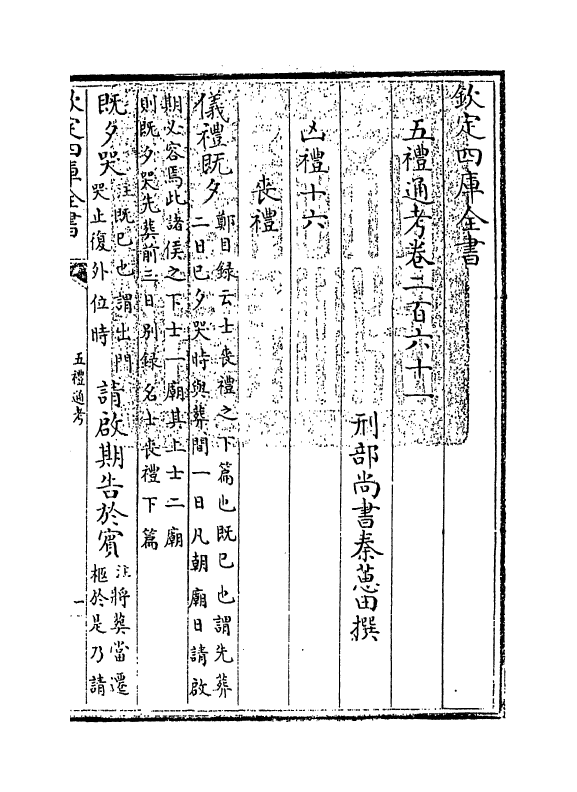 欽定四庫全書
五禮通考卷二百六十一
刑部尚書秦蕙田撰
凶禮十六
喪禮
儀禮既夕
鄭目録云士喪禮之下篇也既已也謂先葬
二日已夕哭時與葬間一日凡朝廟日請啟
期必容焉此諸侯之下士一廟其上士二廟
則既夕哭先葬前三日别録名士喪禮下篇
既夕哭
注既已也謂出門
哭止復外位時
請啟期告於賓
注將葬當遷
柩於是乃請
欽定四庫全書
五禮通考
一